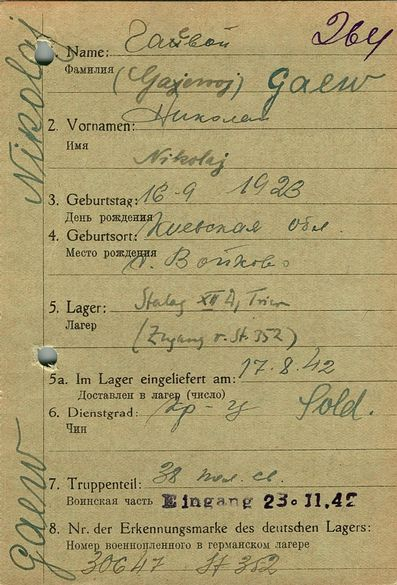 264
1. Name: Гайвой
Фамилия
(Gajewoj) Gaew
2. Vornamen: Николай
Имя
Nikolaj
3. Geburtstag: 16-9 1923
День рождения
4. Geburtsort: Киевская обл.
Место рождения
Войково
5. Lager: Stalag XII D, Trier
Лагерь
(Zugang v. St. 352)
5a. Im Lager eingeliefert am: 17.8.42
Доставлен в лагерь (число)
6. Dienstgrad: кр-ц Sold.
Чин
7. Truppenteil: 38 пол. св.
Воинская часть Eingang 23. 11. 42
8. Nr. der Erkennungsmarke des deutschen Lagers:
Номер военнопленного в германском лагере
30647 St 352
Gaew
Nikolaj